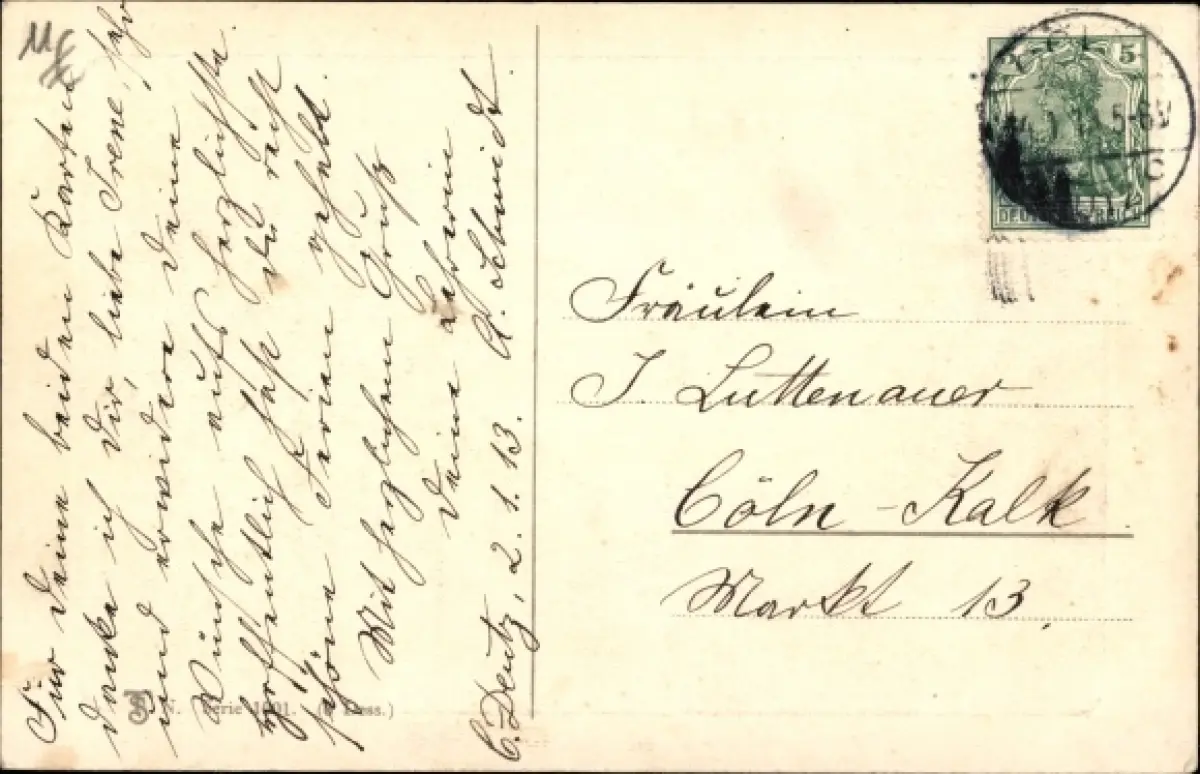 Für Deine beiden Karten
danke ich Dir, liebe Irene, sehr
und erwidere Deine
Wünsche aufs herzlichste.
Hoffentlich hast Du recht
schöne Ferien gehabt.
Mit herzlichem Gruß
Deine Lehrerin
A. Schmidt.
C. Deutz, 2.1.13.
N. Serie 1901. Dess.)
5
5-6N
C
DEUTSCHES REICH
Fräulein
J. Luttenauer
Cöln-Kalk
Markt 13.